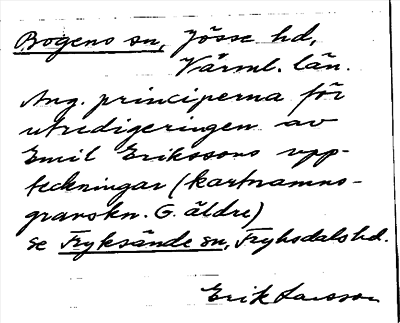 Bogens sn, Jösse hd,
Värml. län.
Ang. principerna för
utredigeringen av
Emil Erikssons upp-
teckningar (kartnamns-
granskn. G. äldre)
se Fryksände sn, Fryksdals hd.
Erik Larsson